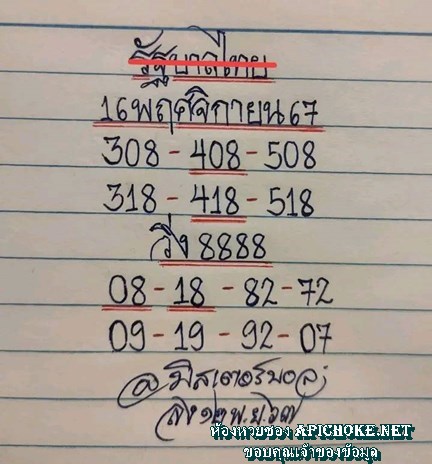 รัฐบาลไทย
16 พฤศจิกายน 67
308 - 408 - 508
318 - 418 - 518
วิ่ง 8888
08 - 18 - 82 - 72
09 - 19 - 92 - 07
@มิสเตอร์บอล
ลง ๑๒ พ.ย. ๖๗
ห้องหวยซอง APICHOKE.NET
ขอบคุณเจ้าของข้อมูล